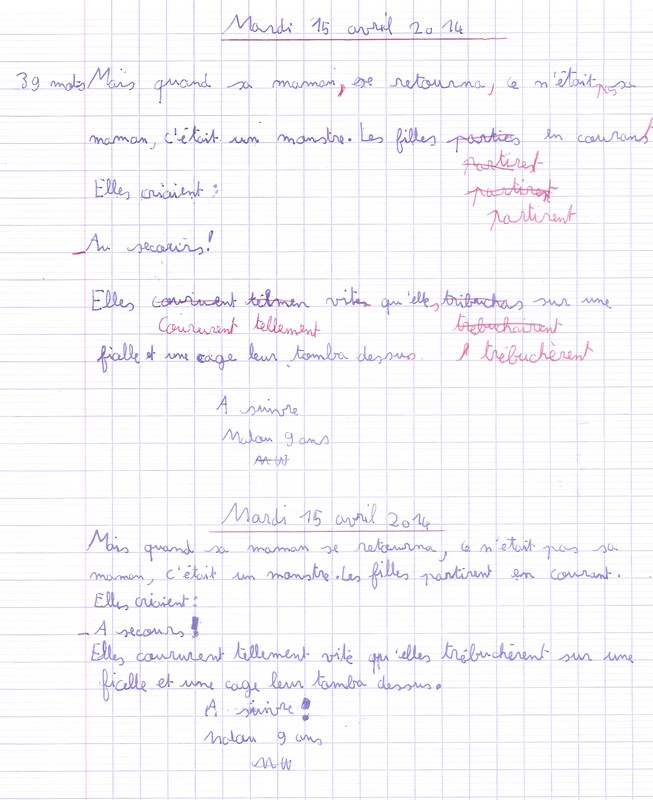 Mardi 15 avril 2014
39 mots Mais quand sa maman, se retourna, ce n'était pas sa
maman, c'était un monstre. Les filles parties en courant
partirest
Elles criaient :
partirest
partirent
- Au secours!
Elles courivent télmen vite qu'elles tribuchas sur une
Coururent tellement trebuchairent
ficelle et une cage leur tomba dessus. trébuchèrent
A suivre
Malau 9 ans
MW
Mardi 15 avril 2014
Mais quand sa maman se retourna, ce n'était pas sa
maman, c'était un monstre. Les filles partirent en courant.
Elles criaient :
- A secours !
Elles coururent tellement vite qu'elles trébuchèrent sur une
ficelle et une cage leur tomba dessus.
A suivre !
Malau 9 ans
MW